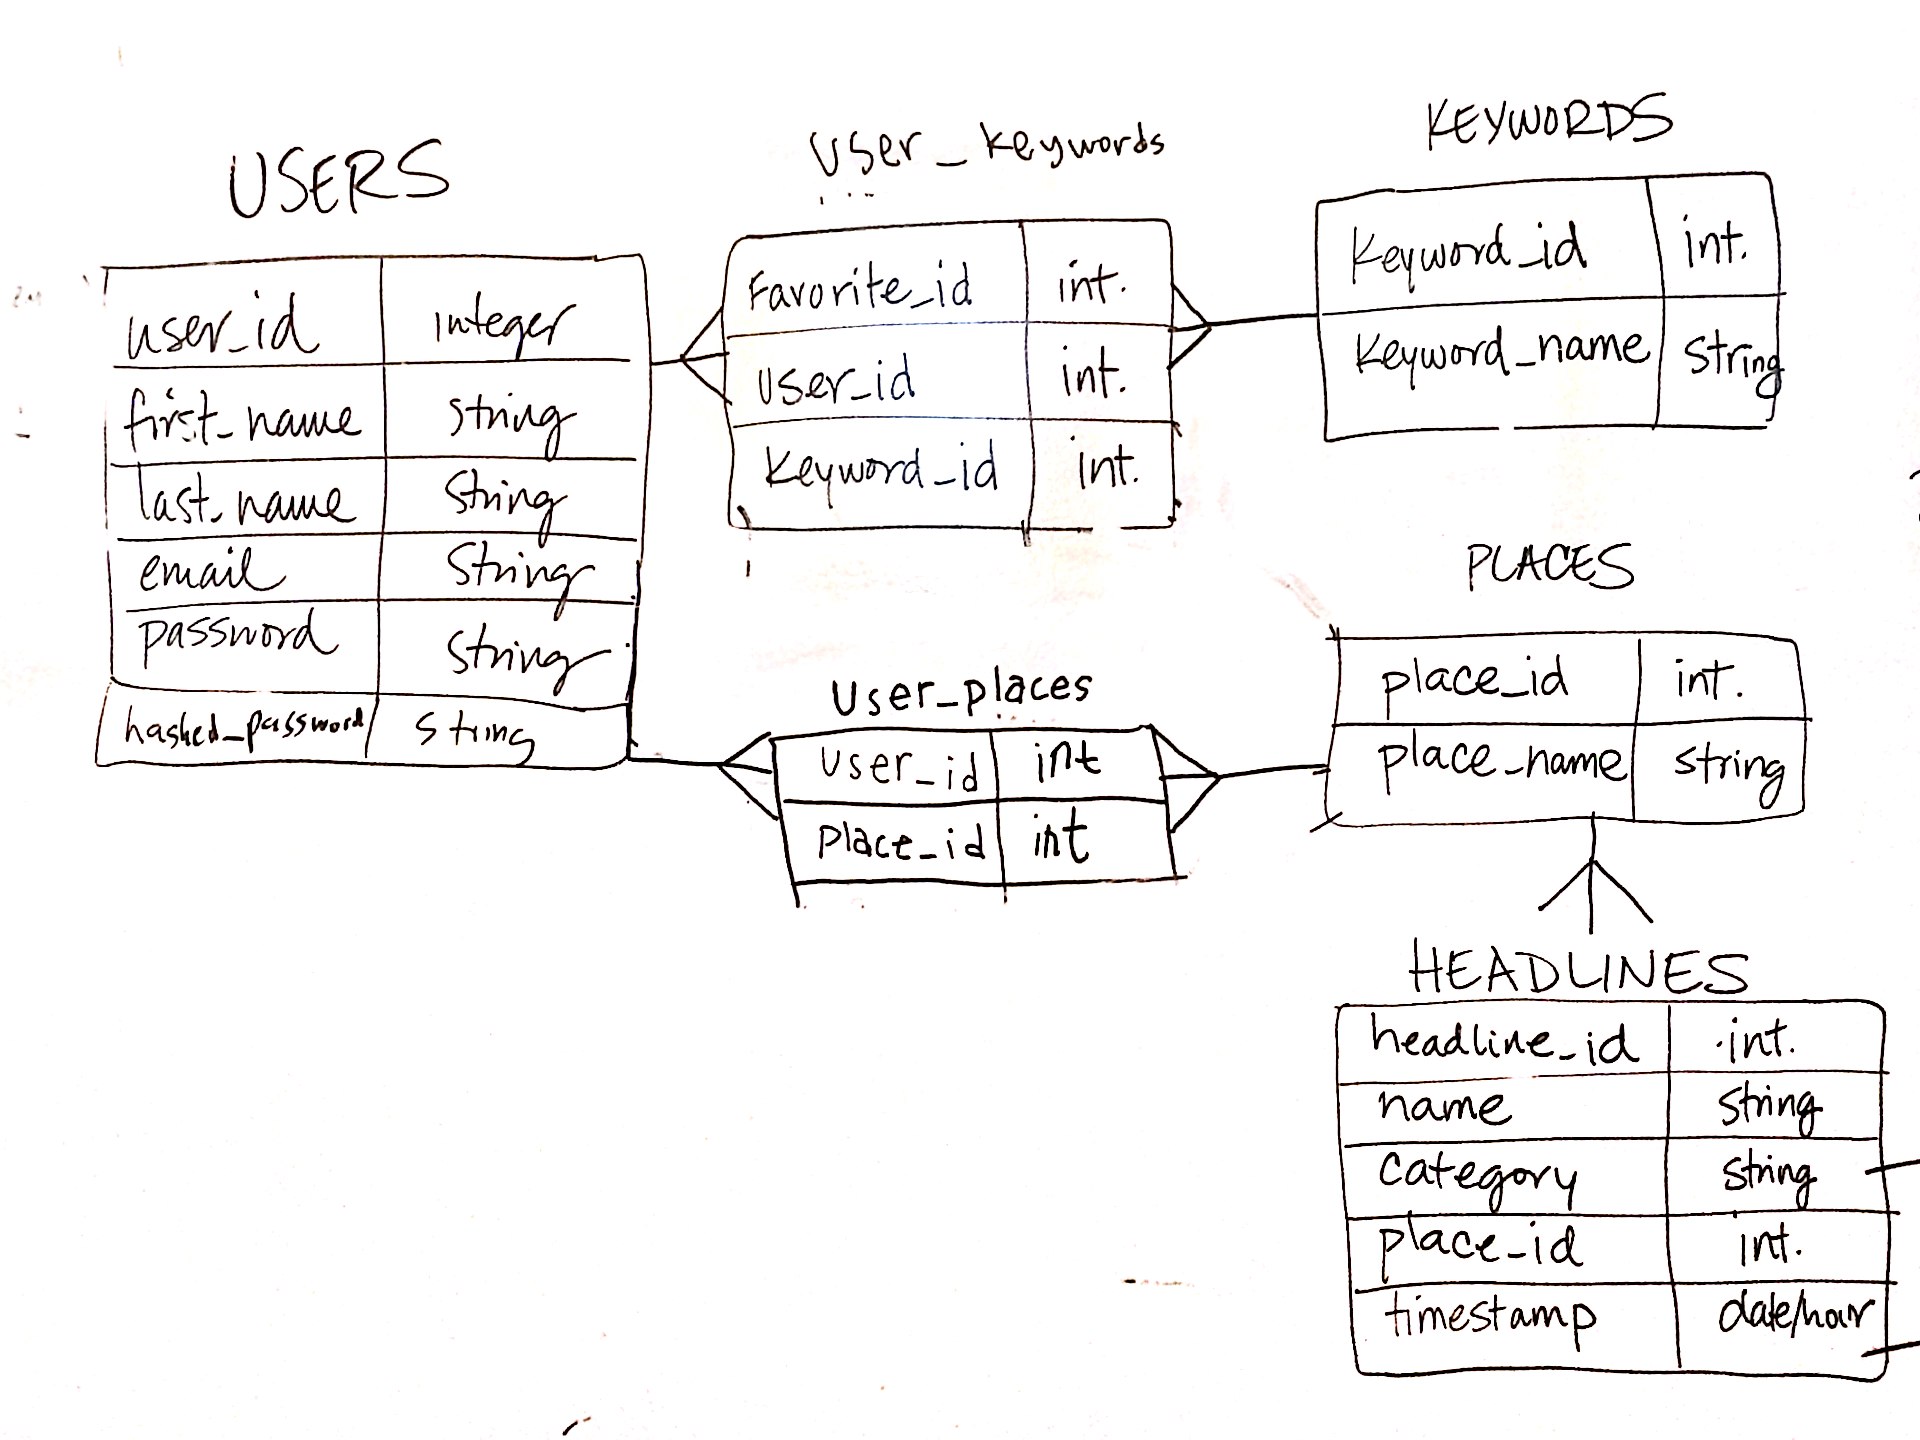 USERS
user_id integer
first_name string
last_name string
email string
password string
hashed_password string
User_keywords
Favorite_id int.
User_id int.
Keyword_id int.
KEYWORDS
Keyword_id int.
Keyword_name string
User_places
User_id int
Place_id int
PLACES
place_id int.
place_name string
HEADLINES
headline_id int.
name string
category string
place_id int.
timestamp date/hour